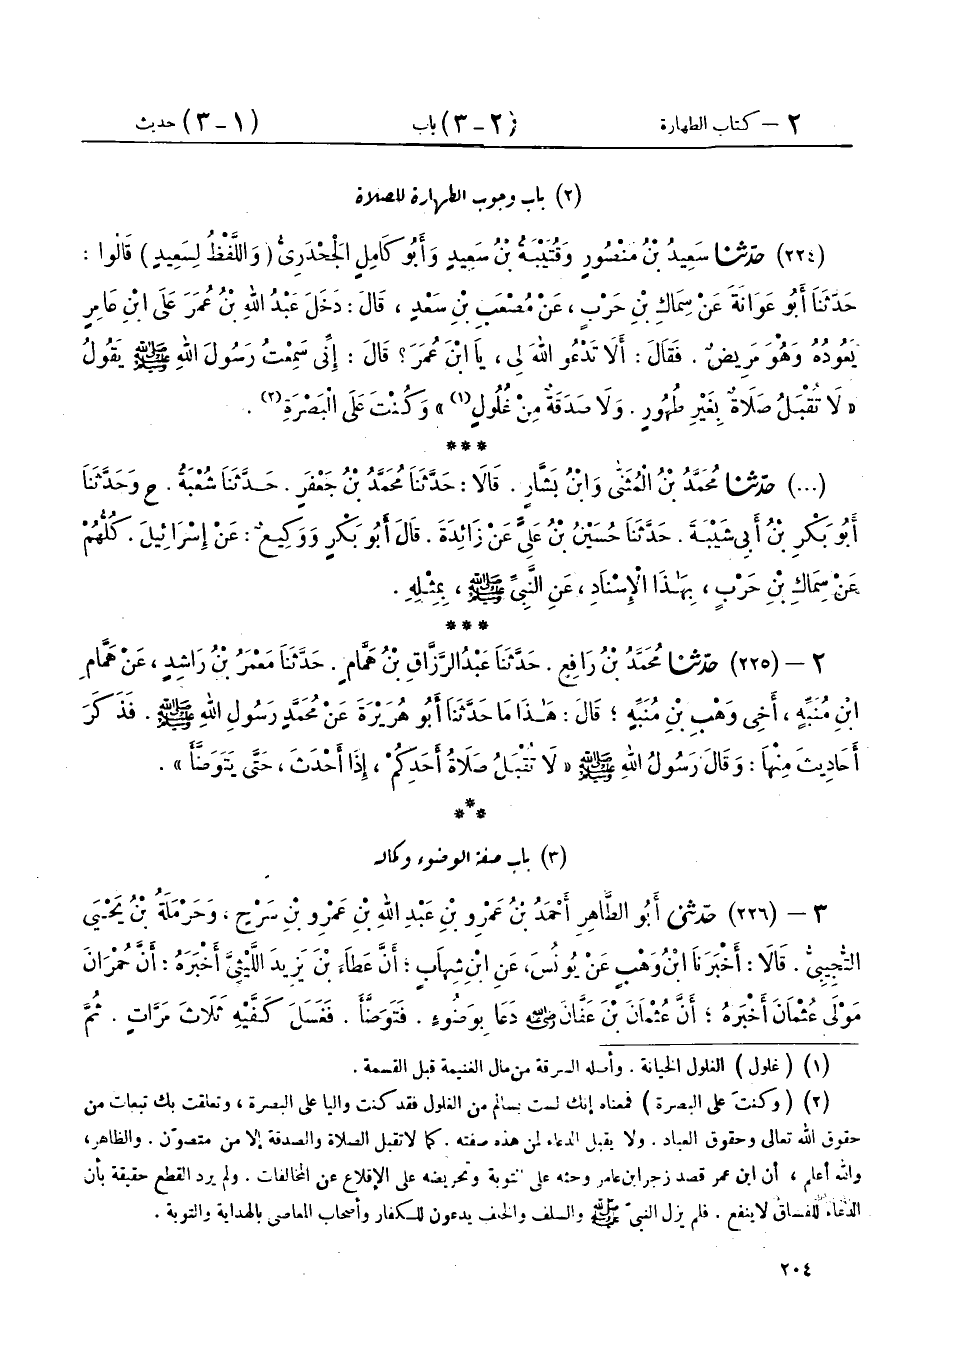 ٢ – كتاب الطهارة (٢ – ٣) باب (١ – ٣) حديث
(٢) باب وجوب الطهارة للصلاة
(٢٢٤) حدّثنا سَعِيدُ بْنُ مَنْصُورٍ وَقُتَيْبَةُ بْنُ سَعِيدٍ وَأَبُو كَامِلٍ الْجَحْدَرِىُّ (وَاللَّفْظُ لِسَعِيدٍ) قَالُوا :
حَدَّثَنَا أَبُو عَوَانَةَ عَنْ سِمَاكِ بْنِ حَرْبٍ ، عَنْ مُصْعَبِ بْنِ سَعْدٍ ، قَالَ : دَخَلَ عَبْدُ اللهِ بْنُ عُمَرَ عَلَى ابْنِ عَامِرٍ
يَعُودُهُ وَهُوَ مَرِيضٌ . فَقَالَ : أَلَا تَدْعُو اللهَ لِى ، يَا ابْنَ عُمَرَ ؟ قَالَ : إِنِّى سَمِعْتُ رَسُولَ اللهِ ﷺ يَقُولُ
« لَا تُقْبَلُ صَلَاةٌ بِغَيْرِ طُهُورٍ . وَلَا صَدَقَةٌ مِنْ غُلُولٍ(١) » وَكُنْتَ عَلَى الْبَصْرَةِ(٢) .
***
(...) حدّثنا مُحَمَّدُ بْنُ الْمُثَنَّى وَابْنُ بَشَّارٍ . قَالَا : حَدَّثَنَا مُحَمَّدُ بْنُ جَعْفَرٍ . حَدَّثَنَا شُعْبَةُ . ح وَحَدَّثَنَا
أَبُو بَكْرِ بْنُ أَبِى شَيْبَةَ . حَدَّثَنَا حُسَيْنُ بْنُ عَلِىٍّ عَنْ زَائِدَةَ . قَالَ أَبُو بَكْرٍ وَوَكِيعٌ : عَنْ إِسْرَائِيلَ . كُلُّهُمْ
عَنْ سِمَاكِ بْنِ حَرْبٍ ، بِهَٰذَا الْإِسْنَادِ ، عَنِ النَّبِىِّ ﷺ ، بِمِثْلِهِ .
***
٢ – (٢٢٥) حدّثنا مُحَمَّدُ بْنُ رَافِعٍ . حَدَّثَنَا عَبْدُ الرَّزَّاقِ بْنُ هَمَّامٍ . حَدَّثَنَا مَعْمَرُ بْنُ رَاشِدٍ ، عَنْ هَمَّامِ
ابْنِ مُنَبِّهٍ ، أَخِى وَهْبِ بْنِ مُنَبِّهٍ ؛ قَالَ : هَٰذَا مَا حَدَّثَنَا أَبُو هُرَيْرَةَ عَنْ مُحَمَّدٍ رَسُولِ اللهِ ﷺ . فَذَكَرَ
أَحَادِيثَ مِنْهَا : وَقَالَ رَسُولُ اللهِ ﷺ « لَا تُقْبَلُ صَلَاةُ أَحَدِكُمْ ، إِذَا أَحْدَثَ ، حَتَّى يَتَوَضَّأَ » .
***
(٣) باب صفة الوضوء وكماله
٣ – (٢٢٦) حدّثنى أَبُو الطَّاهِرِ أَحْمَدُ بْنُ عَمْرِو بْنِ عَبْدِ اللهِ بْنِ عَمْرِو بْنِ سَرْحٍ ، وَحَرْمَلَةُ بْنُ يَحْيَى
التُّجِيبِىُّ . قَالَا : أَخْبَرَنَا ابْنُ وَهْبٍ عَنْ يُونُسَ ، عَنِ ابْنِ شِهَابٍ ؛ أَنَّ عَطَاءَ بْنَ يَزِيدَ اللَّيْثِىَّ أَخْبَرَهُ ؛ أَنَّ حُمْرَانَ
مَوْلَى عُثْمَانَ أَخْبَرَهُ ؛ أَنَّ عُثْمَانَ بْنَ عَفَّانَ رضي الله عنه دَعَا بِوَضُوءٍ . فَتَوَضَّأَ . فَغَسَلَ كَفَّيْهِ ثَلَاثَ مَرَّاتٍ . ثُمَّ
(١) ( غلول ) الغلول الخيانة . وأصله السرقة من مال الغنيمة قبل القسمة .
(٢) ( وكنتَ على البصرة ) فمعناه إنك لست بسالم من الغلول فقد كنت واليا على البصرة ، وتعلقت بك تبعات من
حقوق الله تعالى وحقوق العباد . ولا يقبل الدعاء لمن هذه صفته . كما لا تقبل الصلاة والصدقة إلا من متصوّن . والظاهر ،
والله أعلم ، أن ابن عمر قصد زجر ابن عامر وحثه على التوبة وتحريضه على الإقلاع عن المخالفات . ولم يرد القطع حقيقة بأن
الدعاء للفساق لا ينفع . فلم يزل النبىّ ﷺ والسلف والخلف يدعون للكفار وأصحاب المعاصى بالهداية والتوبة .
٢٠٤